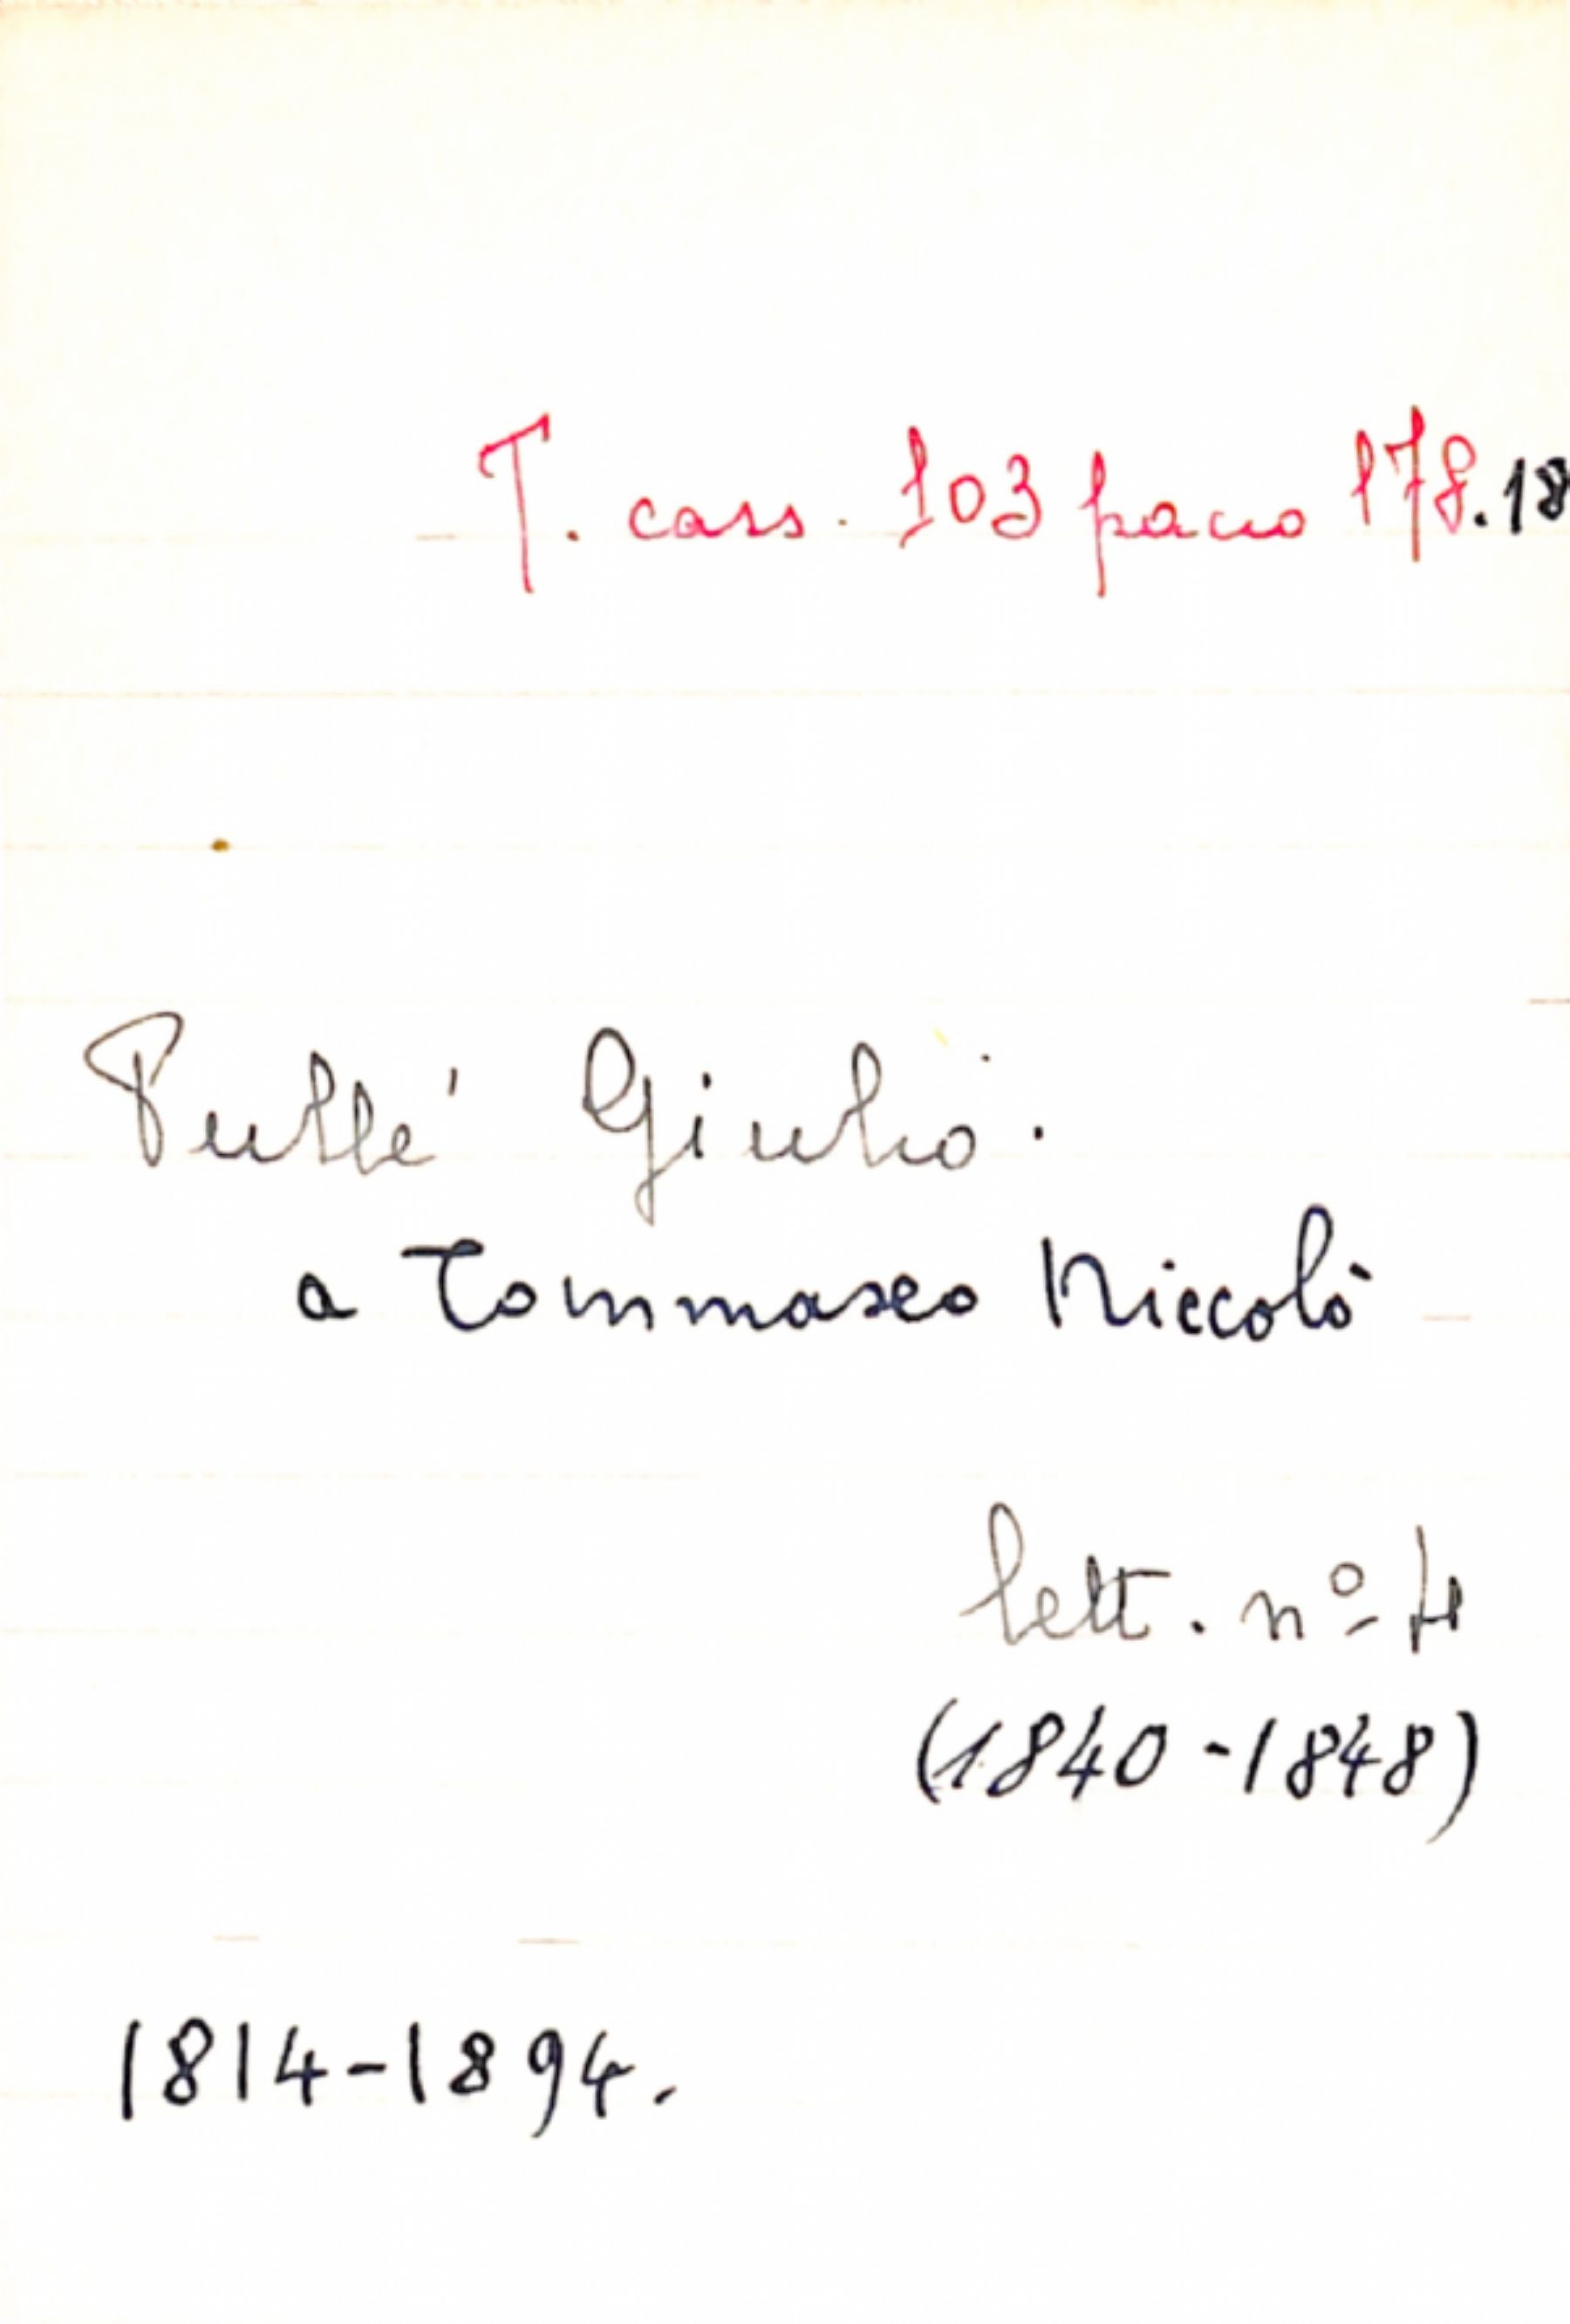 T. cass. 103 pacco 178.18
Pullé Giulio.
a Tommaseo Niccolò
lett. nº 4
(1840-1848)
1814-1894.